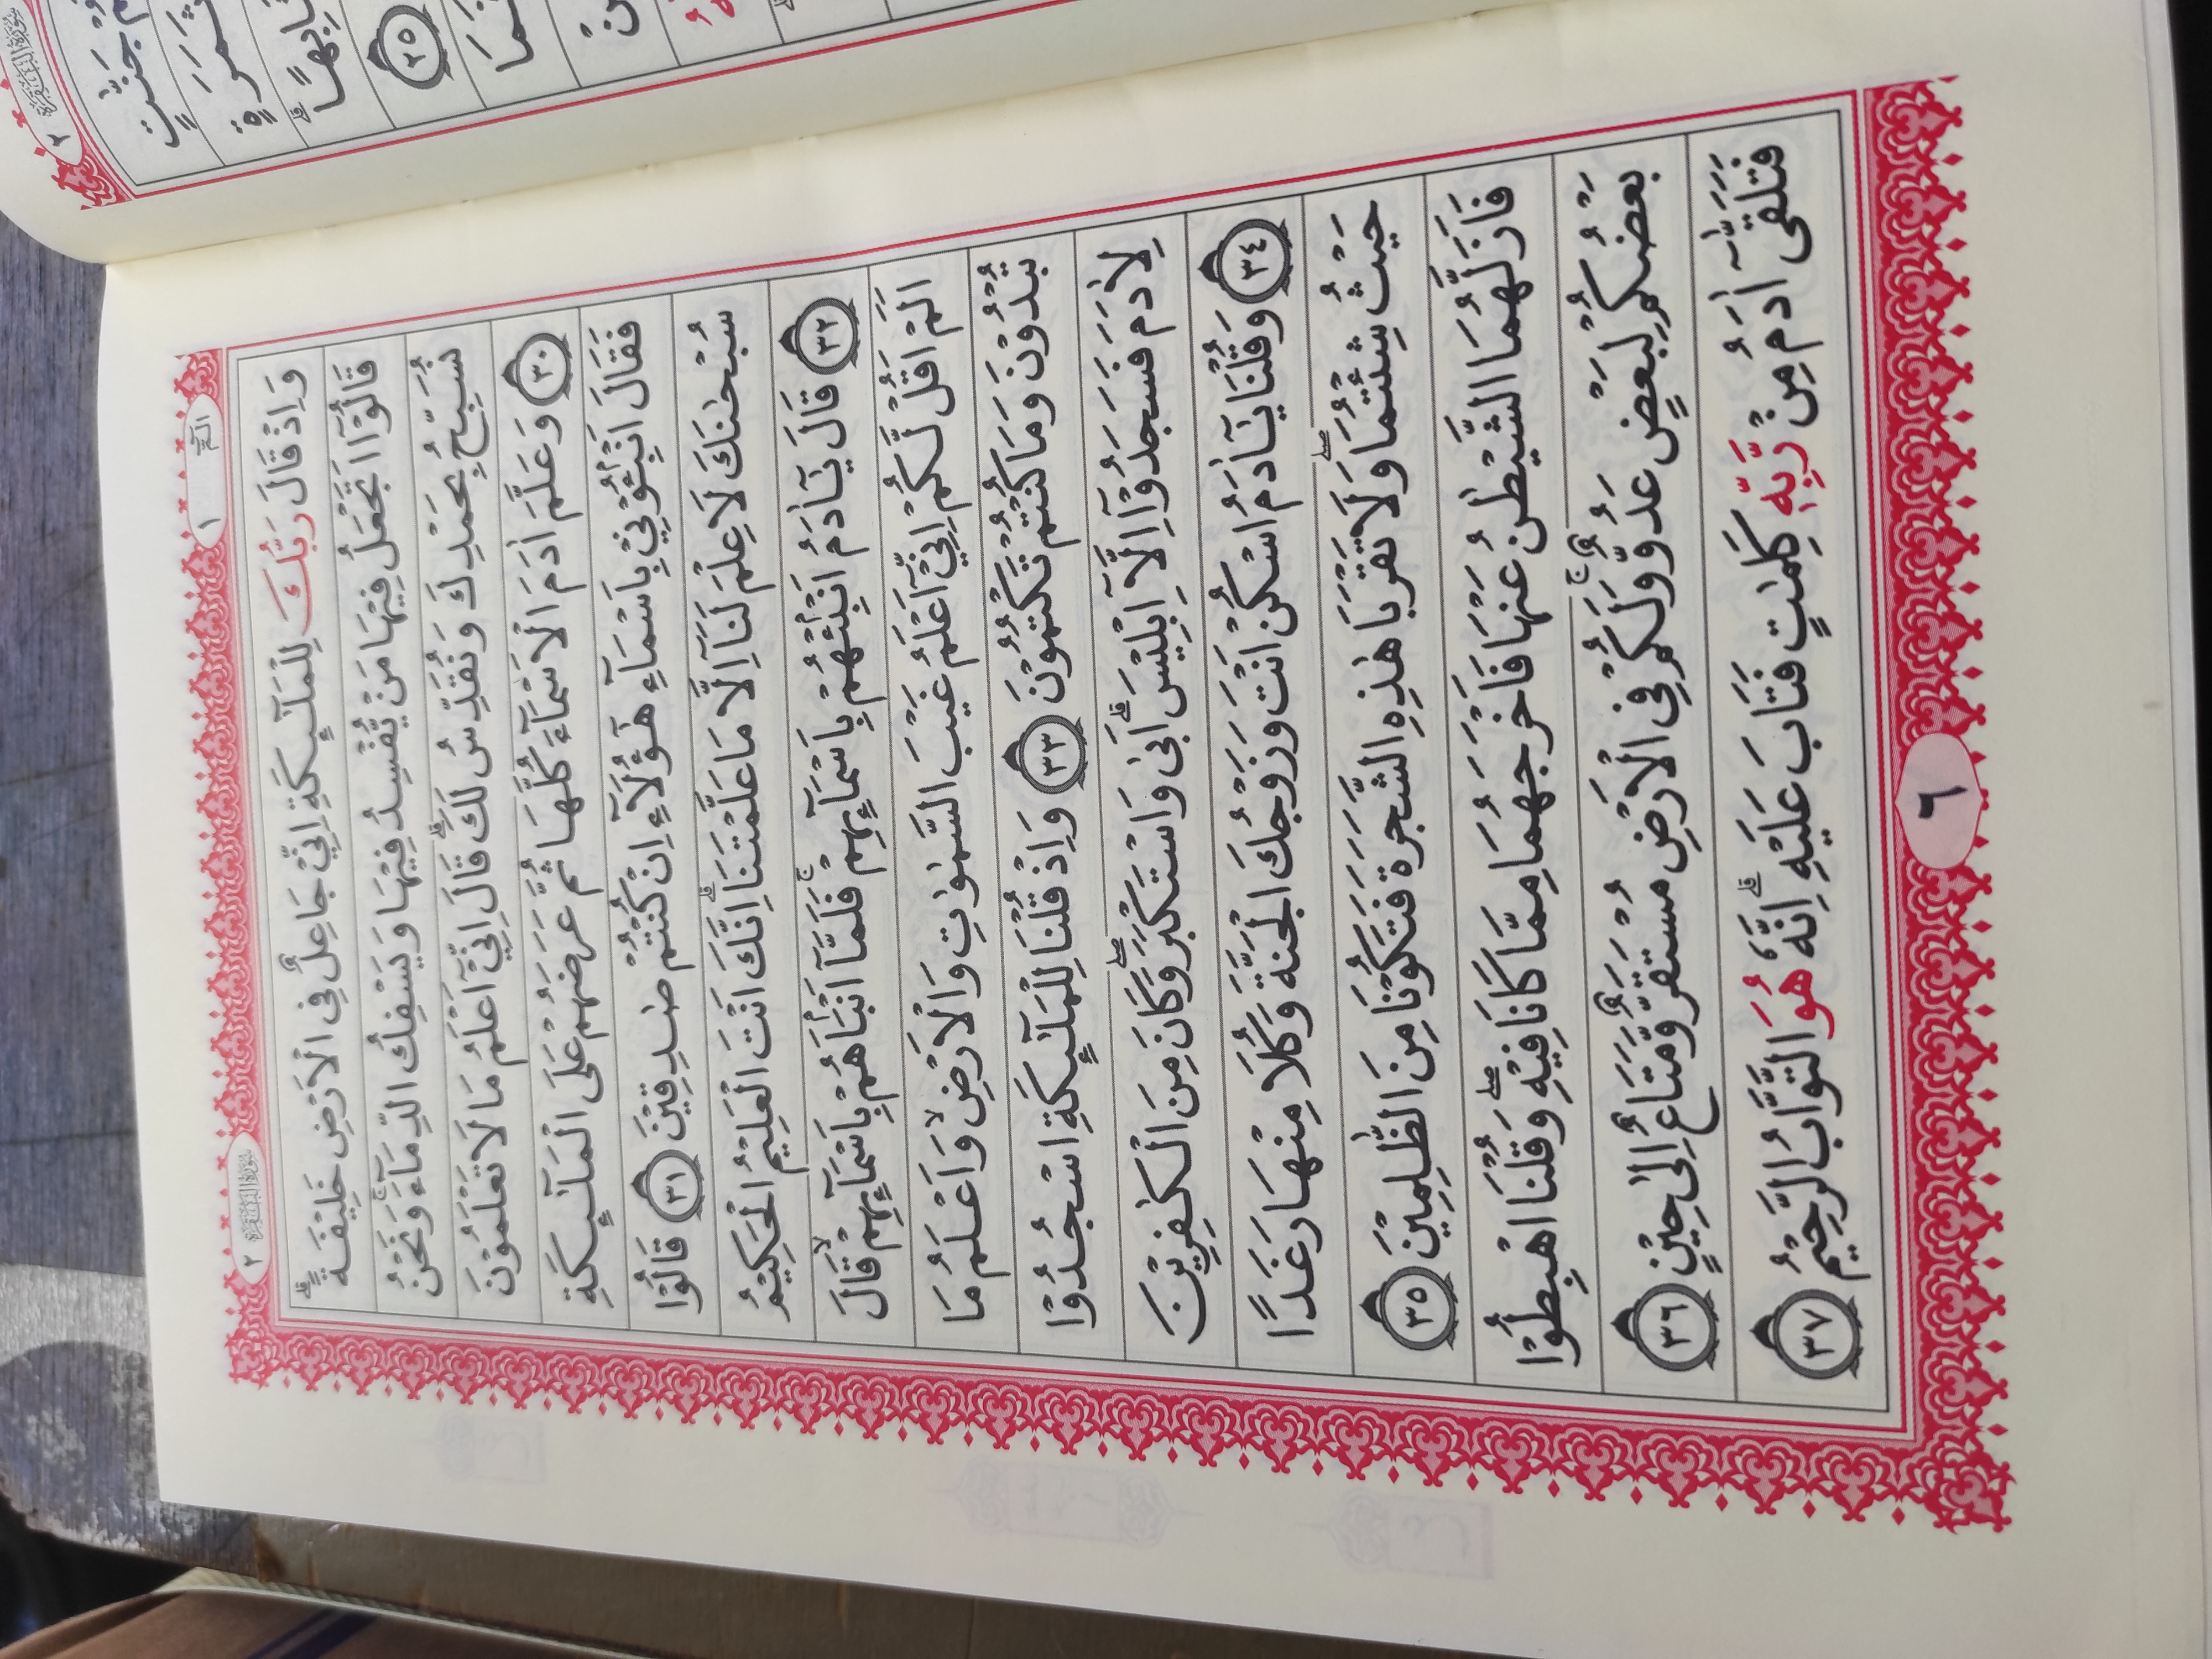 الٓمّٓ ١
سورة البقرة ٢
وَاِذْ قَالَ رَبُّكَ لِلْمَلٰٓئِكَةِ اِنِّيْ جَاعِلٌ فِى الْاَرْضِ خَلِيْفَةً ۗ
قَالُوْٓا اَتَجْعَلُ فِيْهَا مَنْ يُّفْسِدُ فِيْهَا وَيَسْفِكُ الدِّمَاۤءَۚ وَنَحْنُ
نُسَبِّحُ بِحَمْدِكَ وَنُقَدِّسُ لَكَ ۗ قَالَ اِنِّيْٓ اَعْلَمُ مَا لَا تَعْلَمُوْنَ
٣٠ وَعَلَّمَ اٰدَمَ الْاَسْمَاۤءَ كُلَّهَا ثُمَّ عَرَضَهُمْ عَلَى الْمَلٰۤىِٕكَةِ
فَقَالَ اَنْۢبِـُٔوْنِيْ بِاَسْمَاۤءِ هٰٓؤُلَاۤءِ اِنْ كُنْتُمْ صٰدِقِيْنَ ٣١ قَالُوْا
سُبْحٰنَكَ لَا عِلْمَ لَنَآ اِلَّا مَا عَلَّمْتَنَا ۗاِنَّكَ اَنْتَ الْعَلِيْمُ الْحَكِيْمُ
٣٢ قَالَ يٰٓاٰدَمُ اَنْۢبِئْهُمْ بِاَسْمَاۤىِٕهِمْ ۚ فَلَمَّآ اَنْۢبَاَهُمْ بِاَسْمَاۤىِٕهِمْۙ قَالَ
اَلَمْ اَقُلْ لَّكُمْ اِنِّيْٓ اَعْلَمُ غَيْبَ السَّمٰوٰتِ وَالْاَرْضِۙ وَاَعْلَمُ مَا
تُبْدُوْنَ وَمَا كُنْتُمْ تَكْتُمُوْنَ ٣٣ وَاِذْ قُلْنَا لِلْمَلٰۤىِٕكَةِ اسْجُدُوْا
لِاٰدَمَ فَسَجَدُوْٓا اِلَّآ اِبْلِيْسَۗ اَبٰى وَاسْتَكْبَرَۖ وَكَانَ مِنَ الْكٰفِرِيْنَ
٣٤ وَقُلْنَا يٰٓاٰدَمُ اسْكُنْ اَنْتَ وَزَوْجُكَ الْجَنَّةَ وَكُلَا مِنْهَا رَغَدًا
حَيْثُ شِئْتُمَاۖ وَلَا تَقْرَبَا هٰذِهِ الشَّجَرَةَ فَتَكُوْنَا مِنَ الظّٰلِمِيْنَ ٣٥
فَاَزَلَّهُمَا الشَّيْطٰنُ عَنْهَا فَاَخْرَجَهُمَا مِمَّا كَانَا فِيْهِ ۖ وَقُلْنَا اهْبِطُوْا
بَعْضُكُمْ لِبَعْضٍ عَدُوٌّ ۚ وَلَكُمْ فِى الْاَرْضِ مُسْتَقَرٌّ وَّمَتَاعٌ اِلٰى حِيْنٍ ٣٦
فَتَلَقّٰٓى اٰدَمُ مِنْ رَّبِّهٖ كَلِمٰتٍ فَتَابَ عَلَيْهِ ۗ اِنَّهٗ هُوَ التَّوَّابُ الرَّحِيْمُ ٣٧
٦
سورة البقرة ٢
جَنّٰتٍ
ثَمَرَةٍ
٢٥